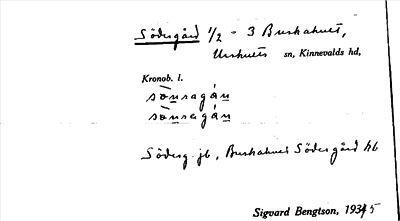 Södergård 1/2 - 3 Buskahult,
Urshults sn, Kinnevalds hd,
Kronob. l.
sönragán
sönsagán
Söderg. jb, Buskahult Södergård hb
Sigvard Bengtson, 1935